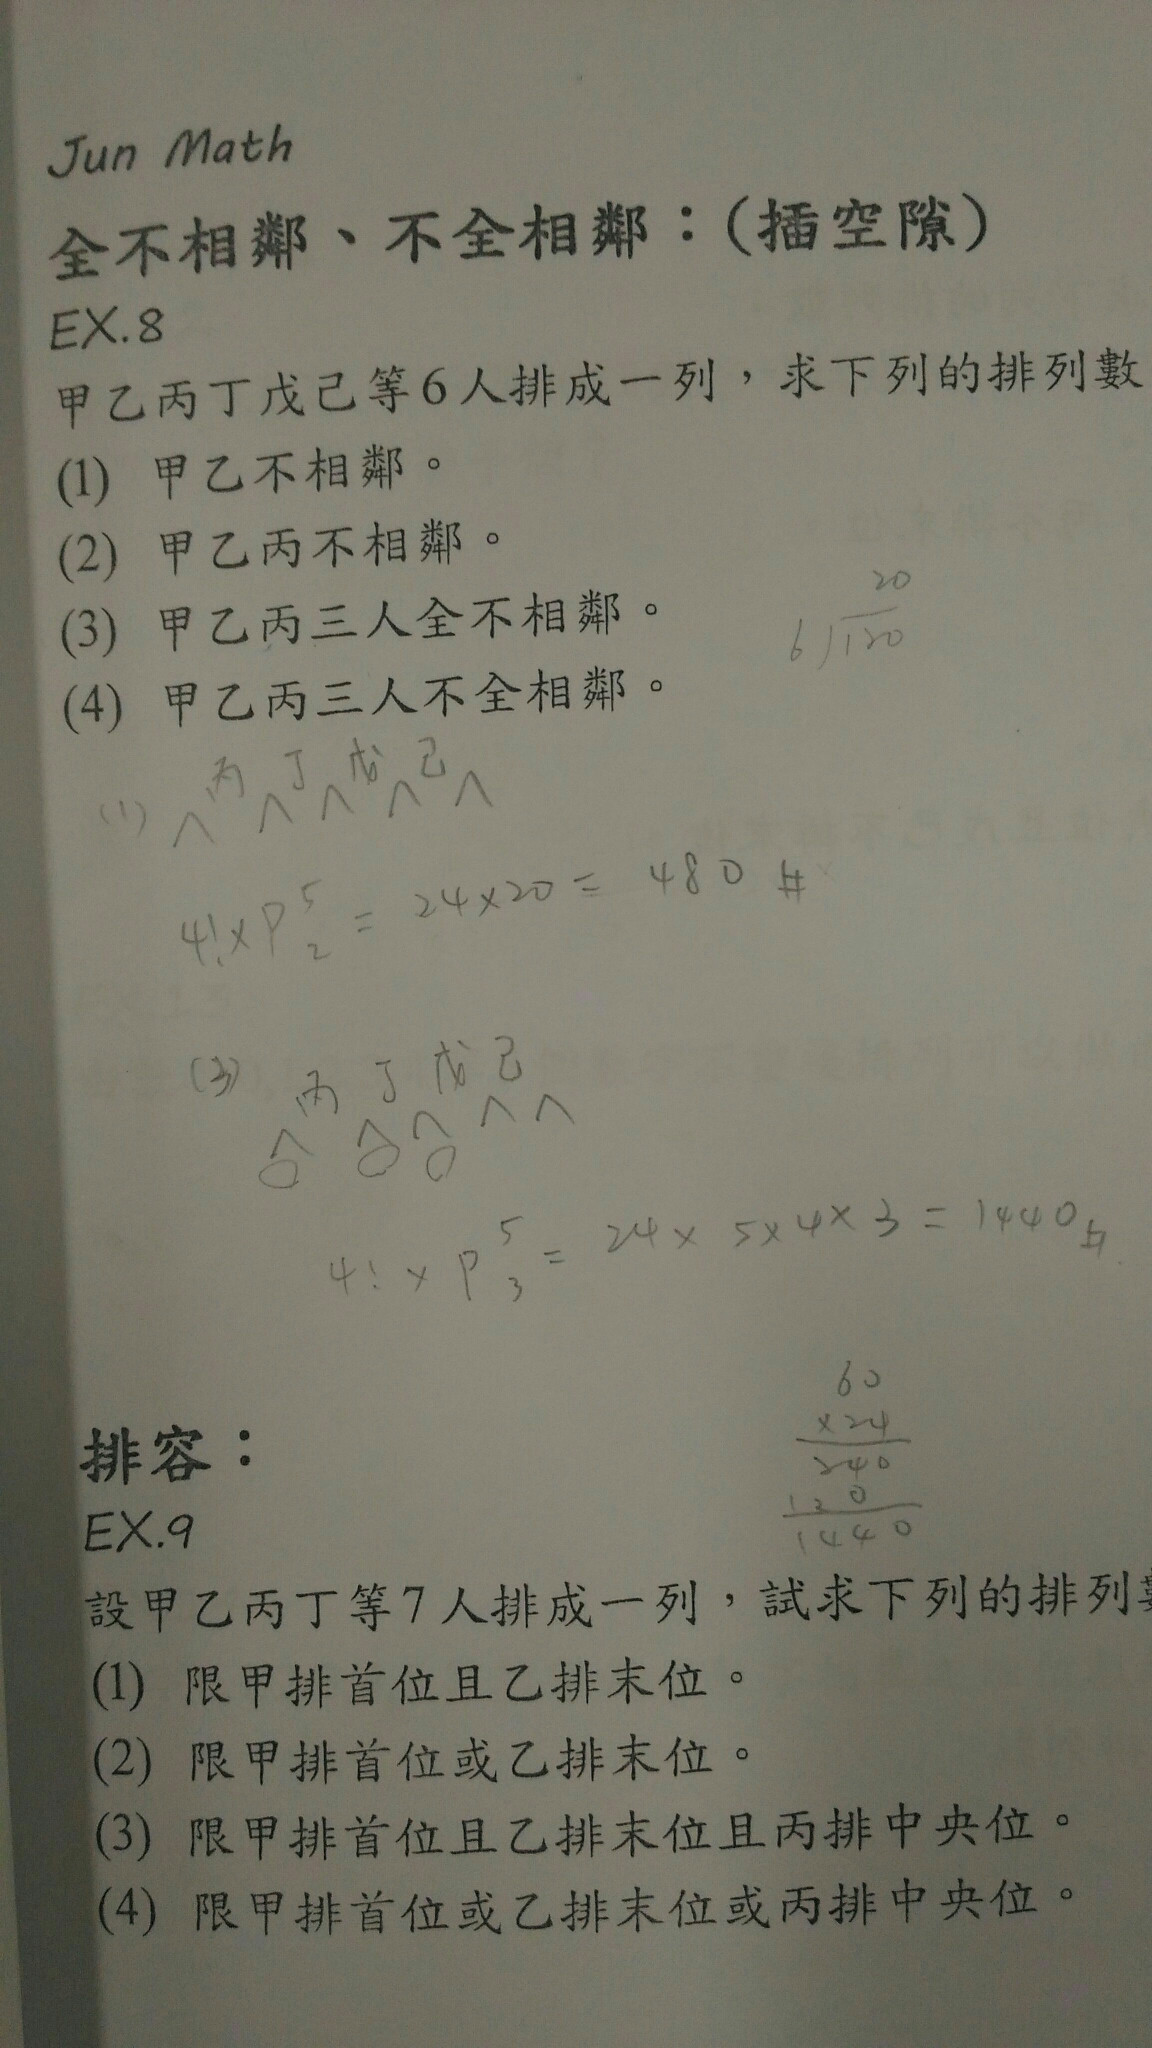 Jun Math
全不相鄰、不全相鄰：(插空隙)
EX.8
甲乙丙丁戊己等6人排成一列，求下列的排列數
(1) 甲乙不相鄰。
(2) 甲乙丙不相鄰。
(3) 甲乙丙三人全不相鄰。
(4) 甲乙丙三人不全相鄰。
20
6)120
丙 丁 戊 己
(1) ∧ ∧ ∧ ∧ ∧
4! × P⁵₂ = 24×20 = 480 #
(3) 丙 丁 戊 己
∧ ∧ ∧ ∧ ∧
4! × P⁵₃ = 24 × 5×4×3 = 1440 #
60
×24
240
120
1440
排容：
EX.9
設甲乙丙丁等7人排成一列，試求下列的排列數
(1) 限甲排首位且乙排末位。
(2) 限甲排首位或乙排末位。
(3) 限甲排首位且乙排末位且丙排中央位。
(4) 限甲排首位或乙排末位或丙排中央位。